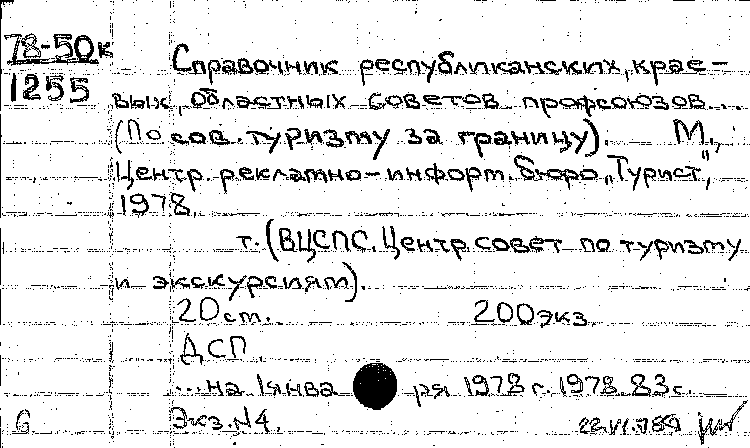 78-50к
1255
Справочник республиканских, крае-
вых, областных советов профсоюзов...
(По сов. туризму за границу). М.,
Центр. рекламно-информ. бюро "Турист",
1978.
т. (ВЦСПС. Центр. совет по туризму
и экскурсиям).
20 ст. 200 экз.
ДСП.
...на 1 янва ря 1978 г. 1978. 83 с.
6 Экз. N4.